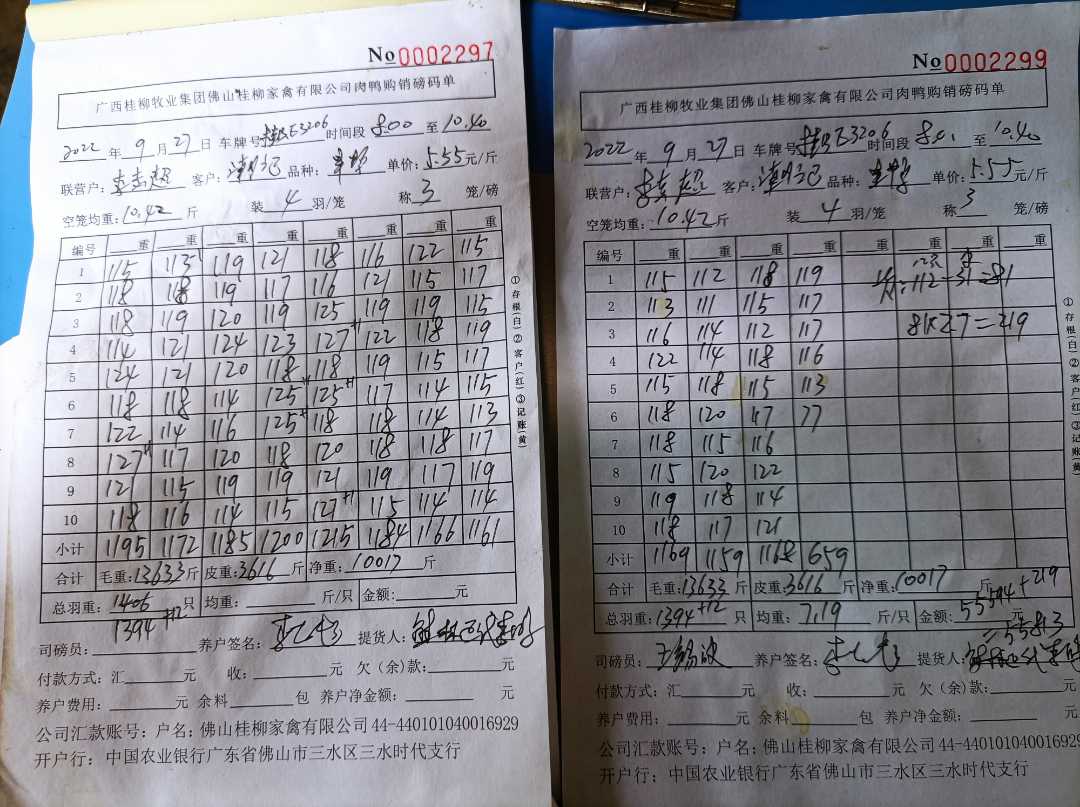 No 0002297
广西桂柳牧业集团佛山桂柳家禽有限公司肉鸭购销磅码单
2022 年 9 月 27 日 车牌号 E3206 时间段 8:00 至 10.40
联营户: 客户: 品种: 单价: 5.55 元/斤
空笼均重: 10.42 斤 装 4 羽/笼 称 3 笼/磅
编号 重 重 重 重 重 重 重 重
1 115 115 119 121 118 116 122 115
2 118 118 119 117 116 121 115 117
3 118 119 120 119 125 119 119 115
4 114 121 124 123 127+1 122 118 119
5 124 121 120 118 118 119 115 117
6 118 118 114 125+1 125+1 117 114 115
7 122 114 116 125+1 118 118 114 113
8 127+1 117 120 118 120 118 118 117
9 121 115 119 119 121 119 117 119
10 118 116 114 115 127+1 115 114 114
小计 1195 1172 1185 1200 1215 1184 1166 1161
合计 毛重: 13633 斤 皮重: 3616 斤 净重: 10017 斤
总羽重: 1406 只 均重: 斤/只 金额: 元
1394+12
司磅员: 养户签名: 提货人:
付款方式: 汇 元 收: 元 欠(余)款: 元
养户费用: 元 余料 包 养户净金额: 元
公司汇款账号: 户名: 佛山桂柳家禽有限公司 44-440101040016929
开户行: 中国农业银行广东省佛山市三水区三水时代支行
①存根(白)②客户(红)③记账(黄)
No 0002299
广西桂柳牧业集团佛山桂柳家禽有限公司肉鸭购销磅码单
2022 年 9 月 27 日 车牌号 E3206 时间段 8:01 至 10.40
联营户: 客户: 品种: 单价: 5.55 元/斤
空笼均重: 10.42 斤 装 4 羽/笼 称 3 笼/磅
编号 重 重 重 重 重 重 重 重
1 115 112 118 119 112-31=81
2 113 111 115 117
3 116 114 112 117 81×2.7=219
4 122 114 118 116
5 115 118 115 113
6 118 120 117 77
7 118 115 116
8 115 120 122
9 119 118 114
10 118 117 121
小计 1169 1159 1168 659
合计 毛重: 13633 斤 皮重: 3616 斤 净重: 10017 斤
总羽重: 1394+12 只 均重: 7.19 斤/只 金额: 55594+219 元
=55813
司磅员: 养户签名: 提货人:
付款方式: 汇 元 收: 元 欠(余)款: 元
养户费用: 元 余料 包 养户净金额: 元
公司汇款账号: 户名: 佛山桂柳家禽有限公司 44-440101040016929
开户行: 中国农业银行广东省佛山市三水区三水时代支行
①存根(白)②客户(红)③记账(黄)